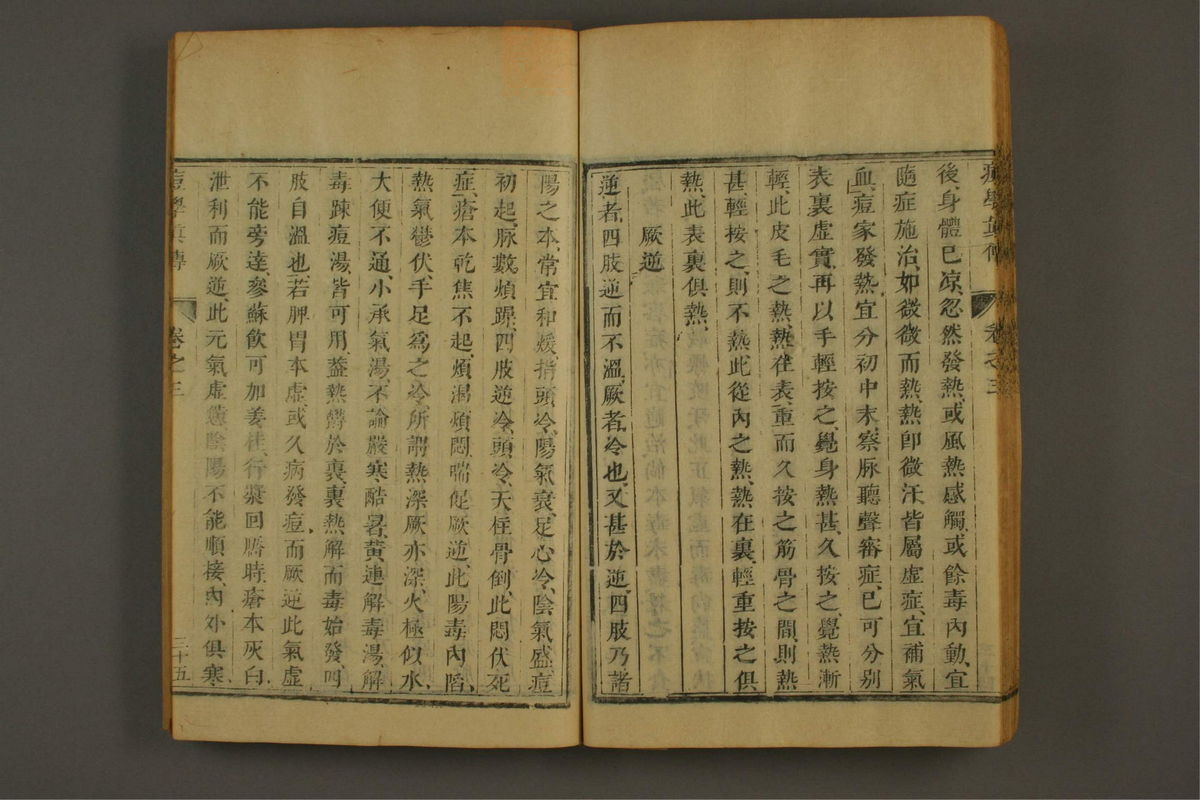 痘學眞傳 卷之三
後、身體已凉、忽然發熱、或風熱感觸、或餘毒內動、宜
隨症施治、如微微而熱、熱卽微汗、皆屬虛症、宜補氣
血、痘家發熱、宜分初中末、察脉聽聲審症、已可分别
表裏虛實、再以手輕按之、覺身熱甚、久按之、覺熱漸
輕、此皮毛之熱、熱在表、重而久按之筋骨之間、則熱
甚、輕按之、則不熱、此從內之熱、熱在裏、輕重按之俱
熱、此表裏俱熱、
厥逆
逆者、四肢逆而不溫、厥者、冷也、又甚於逆、四肢乃諸
陽之本、常宜和煖、指頭冷、陽氣衰、足心冷、陰氣盛、痘
初起、脉數煩躁、四肢逆冷、頭冷、天柱骨倒、此悶伏死
症、瘡本乾焦不起、煩渴煩悶、喘促厥逆、此陽毒內陷、
熱氣鬱伏、手足爲之冷、所謂熱深厥亦深、火極似水、
大便不通、小承氣湯、不論嚴寒酷暑、黃連解毒湯、解
毒踈痘湯、皆可用、蓋熱鬱於裏、裏熱解而毒始發、四
肢自溫也、若脾胃本虛、或久病發痘而厥逆、此氣虛
不能旁達、參蘇飲可加姜桂、行漿回靨時、瘡本灰白、
泄利而厥逆、此元氣虛憊、陰陽不能順接、內外俱寒、
痘學眞傳 卷之三 三十五